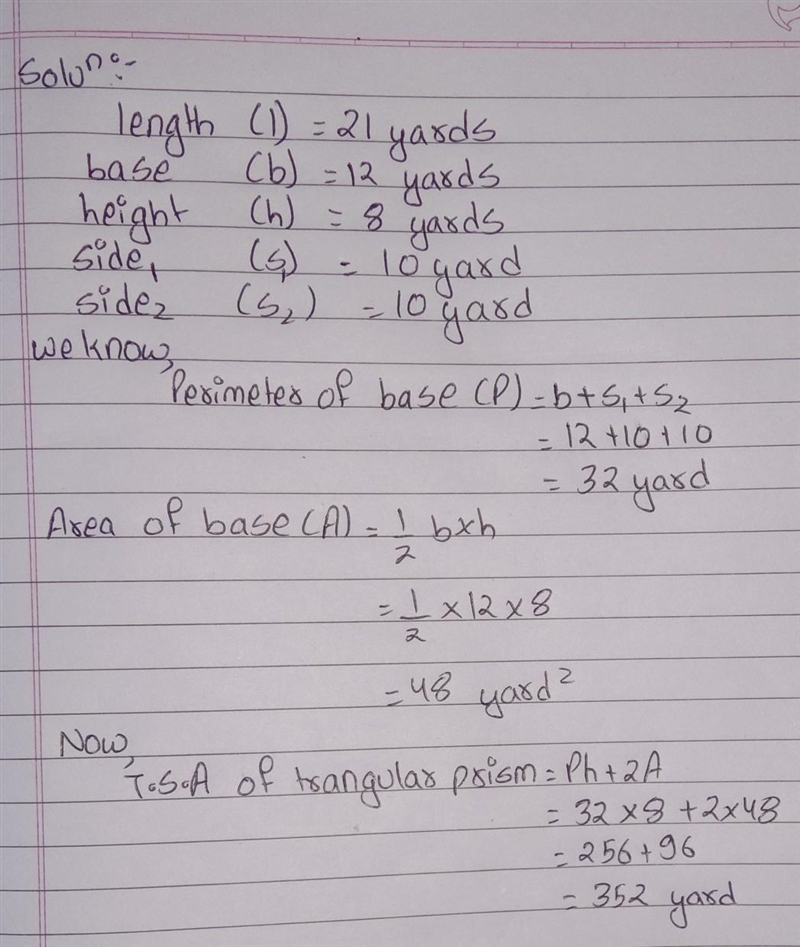 Soluⁿ:-
length (l) = 21 yards
base (b) = 12 yards
height (h) = 8 yards
side₁ (s₁) = 10 yard
side₂ (s₂) = 10 yard
we know,
Perimeter of base (P) = b+s₁+s₂
= 12+10+10
= 32 yard
Area of base (A) = 1/2 b×h
= 1/2 × 12 × 8
= 48 yard²
Now,
T.S.A of trangular prism = Ph+2A
= 32 × 8 + 2×48
= 256+96
= 352 yard